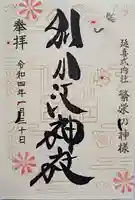 延喜式内社
繁栄の神様
別小江神社
奉拝
令和四年一月三十日